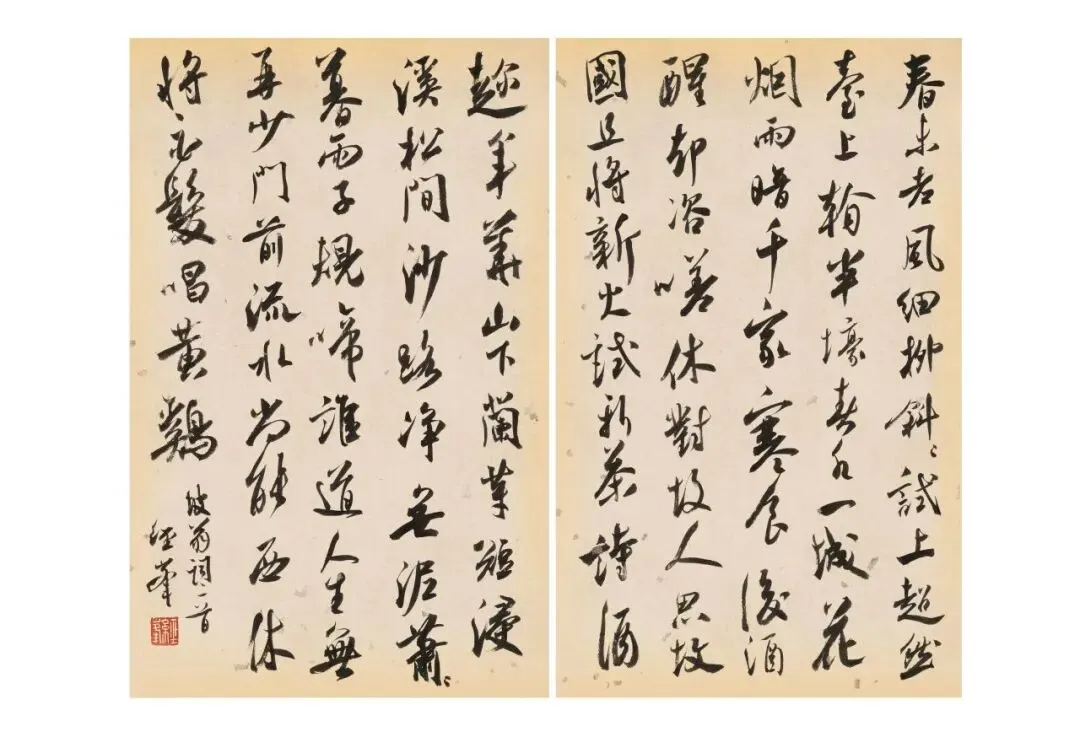 春未老風細柳斜〻試上超然
臺上看半壕春水一城花
烟雨暗千家寒食後酒
醒却咨嗟休對故人思故
國且將新火試新茶詩酒
趁年華山下蘭芽短浸
溪松間沙路净無泥蕭〻
暮雨子規啼誰道人生無
再少門前流水尚能西休
將白髮唱黃鷄
坡翁詞一首